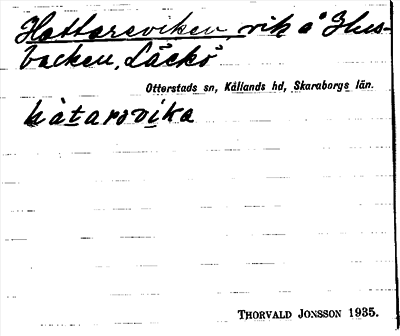 Hattareviken, vik å Hus-
backen, Läckö
Otterstads sn, Kållands hd, Skaraborgs län.
hàtarovi̱ka
THORVALD JONSSON 1935.